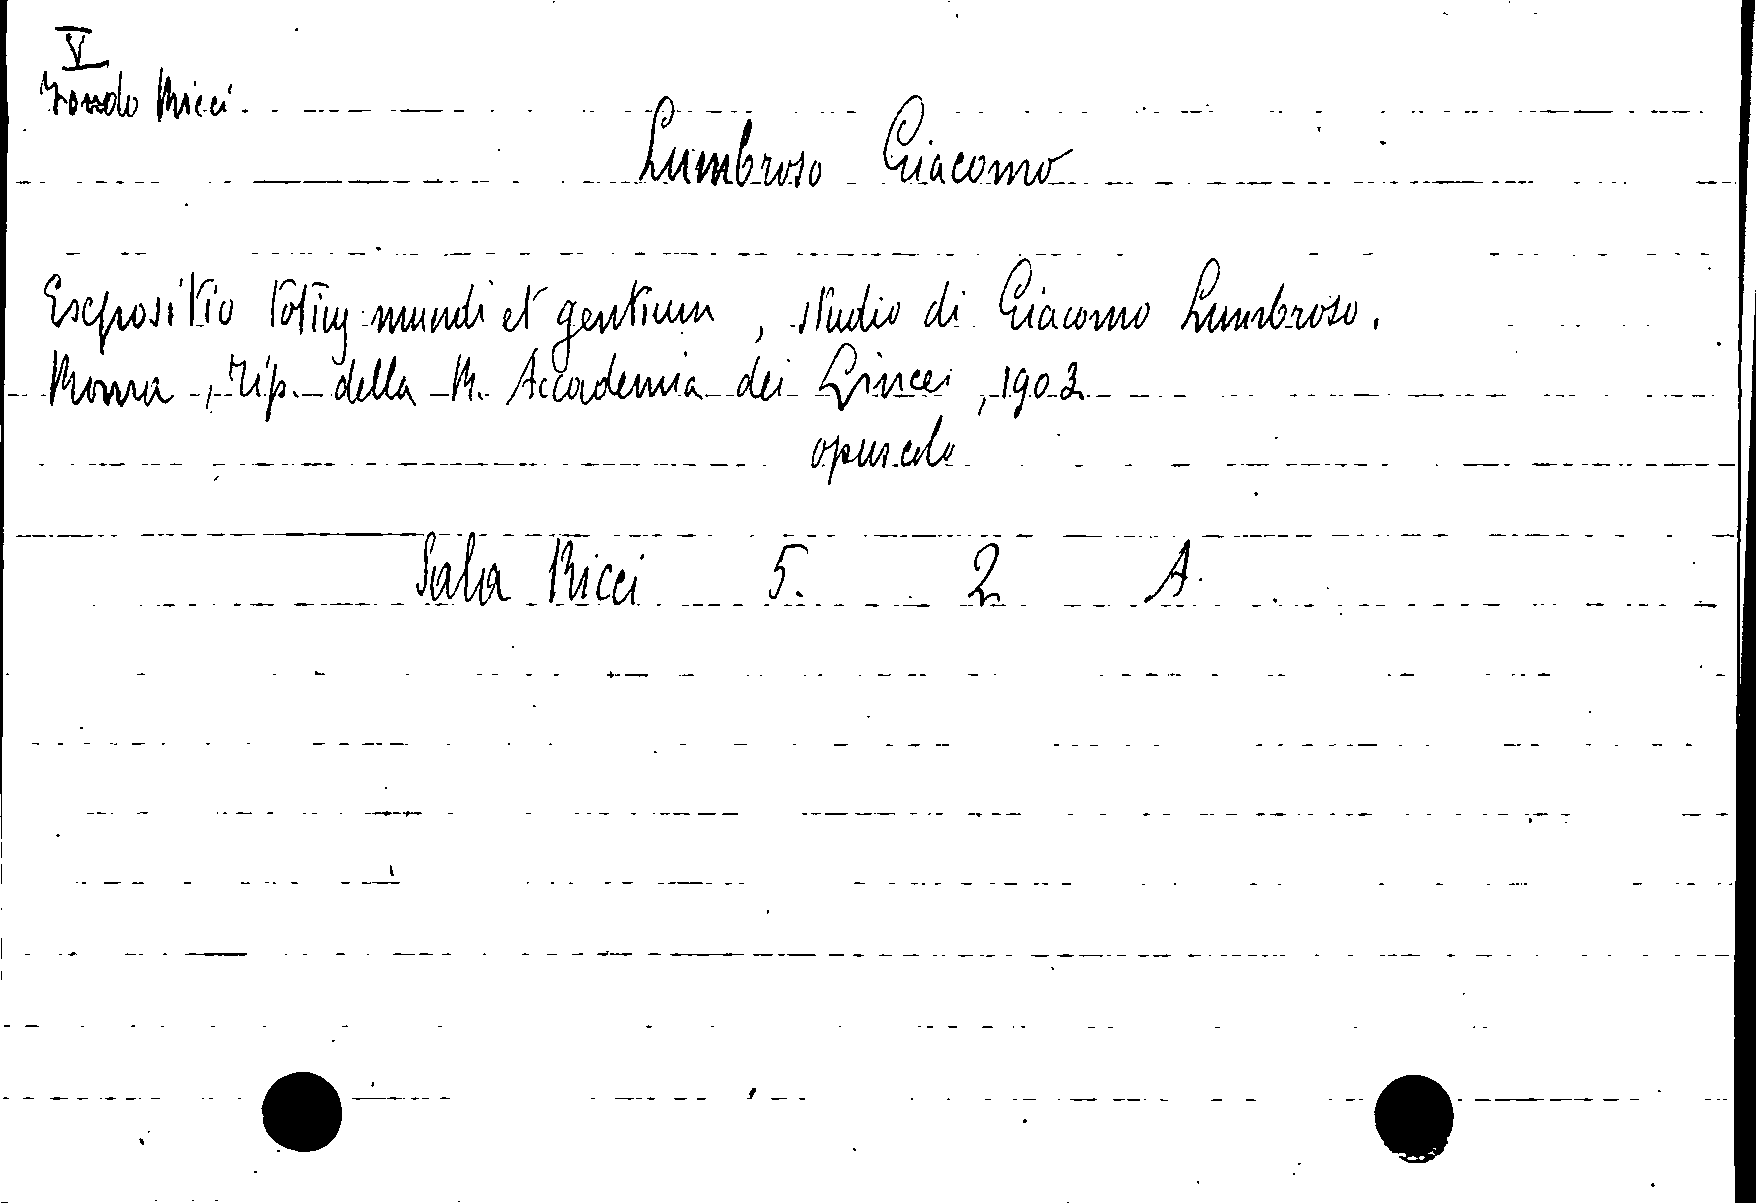 V
Fondo Ricci
Lumbroso Giacomo
Expositio totius mundi et gentium, studio di Giacomo Lumbroso.
Roma, Tip. della R. Accademia dei Lincei, 1903
opuscolo
Sala Ricci 5. 2 A.